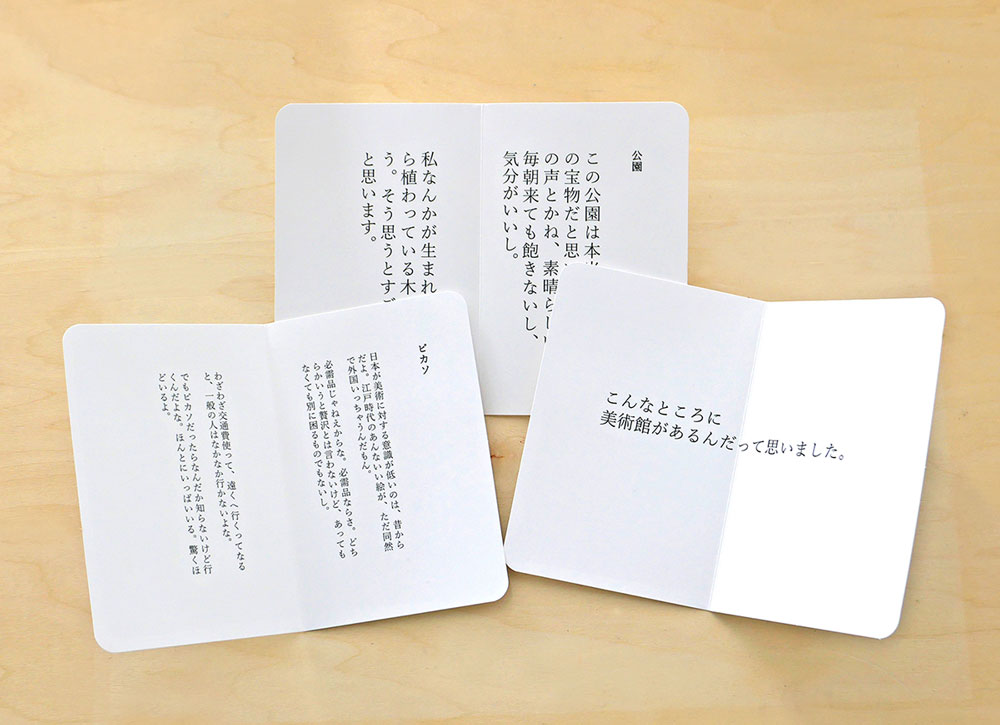 公園
この公園は本当
の宝物だと思
の声とかね、素晴らしい
毎朝来ても飽きないし、
気分がいいし。
私なんかが生まれ
ら植わっている木
う。そう思うとすご
と思います。
ピカソ
日本が美術に対する意識が低いのは、昔から
だよ。江戸時代のあんないい絵が、ただ同然
で外国いっちゃうんだもん。
必需品じゃねえからな。必需品ならさ。どち
らかいうと贅沢とは言わないけど、あっても
なくても別に困るものでもないし。
わざわざ交通費使って、遠くへ行くってなる
と、一般の人はなかなか行かないよな。
でもピカソだったらなんだか知らないけど行
くんだよな。ほんとにいっぱいいる。驚くほ
どいるよ。
こんなところに
美術館があるんだって思いました。